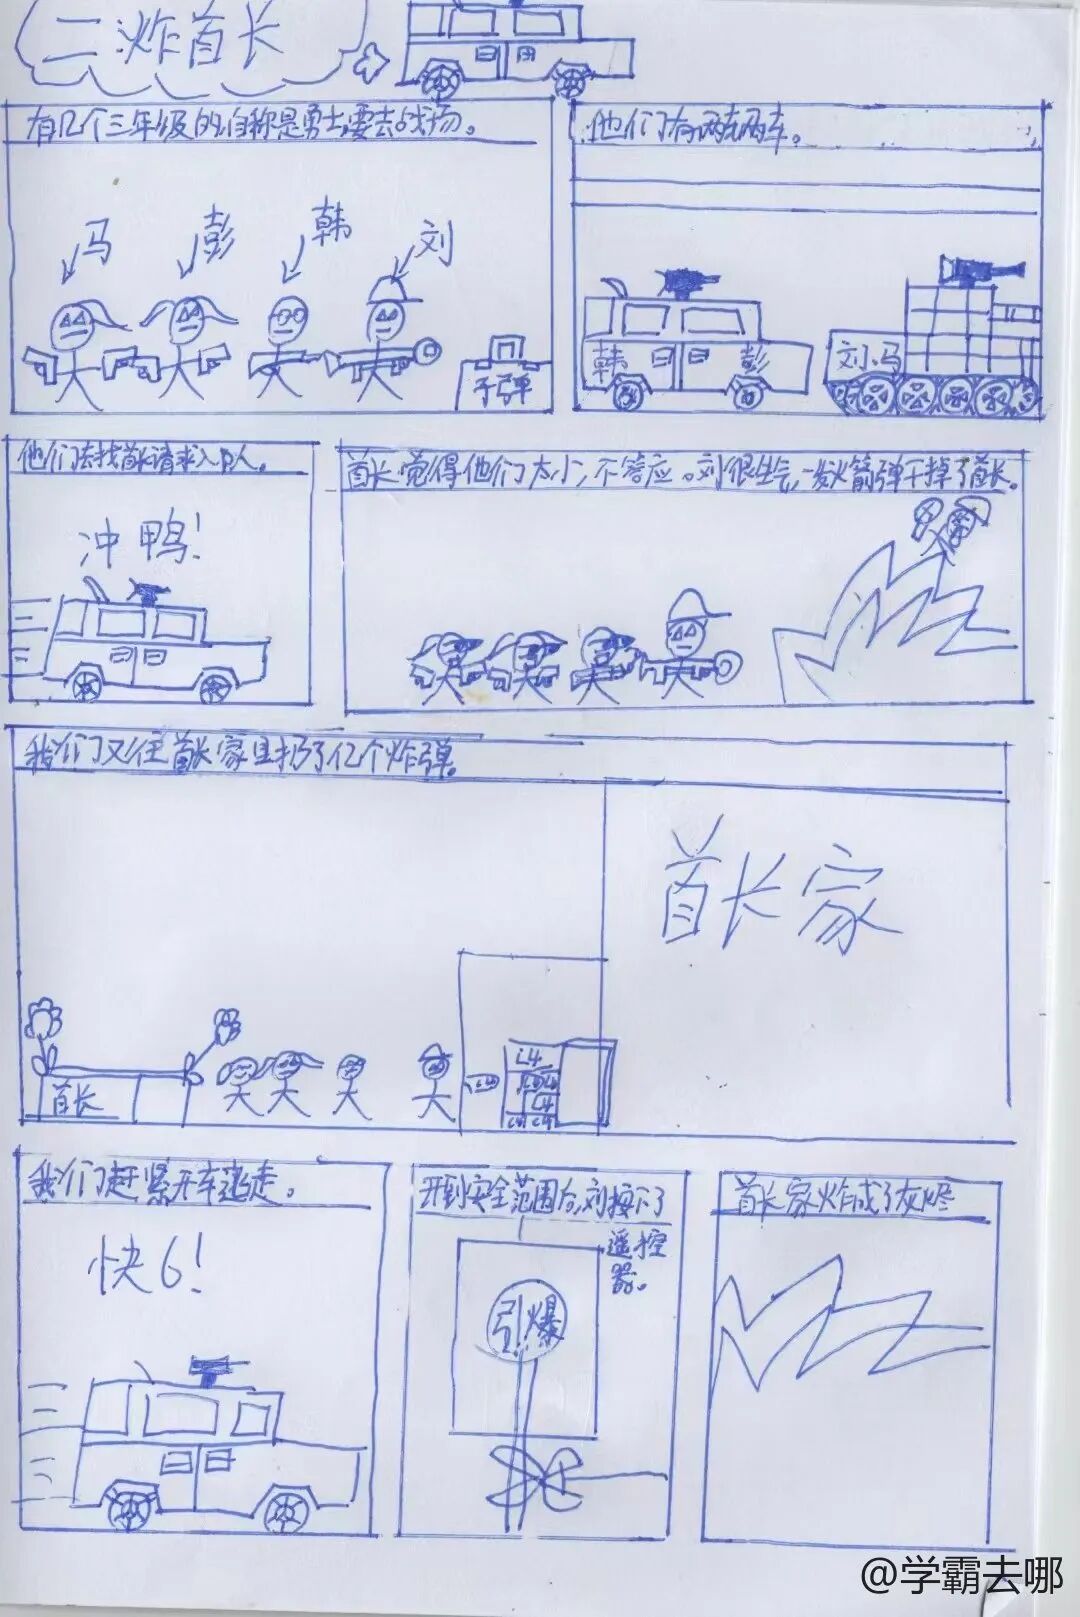 二炸首长
有几个三年级的自称是勇士要去战场。
马
彭
韩
刘
子弹
他们有两
韩
彭
刘
马
他们去找首长请求入
冲鸭!
首长觉得他们太小,不答应。刘很生气,一发火箭弹干掉了首长。
我们又往首长家里扔了亿个炸弹。
首长家
首长
C4
C4
我们赶紧开车逃走。
快6!
开到安全范围后,刘按下了
遥控
器。
引爆
首长家炸成了灰烬
@学霸去哪